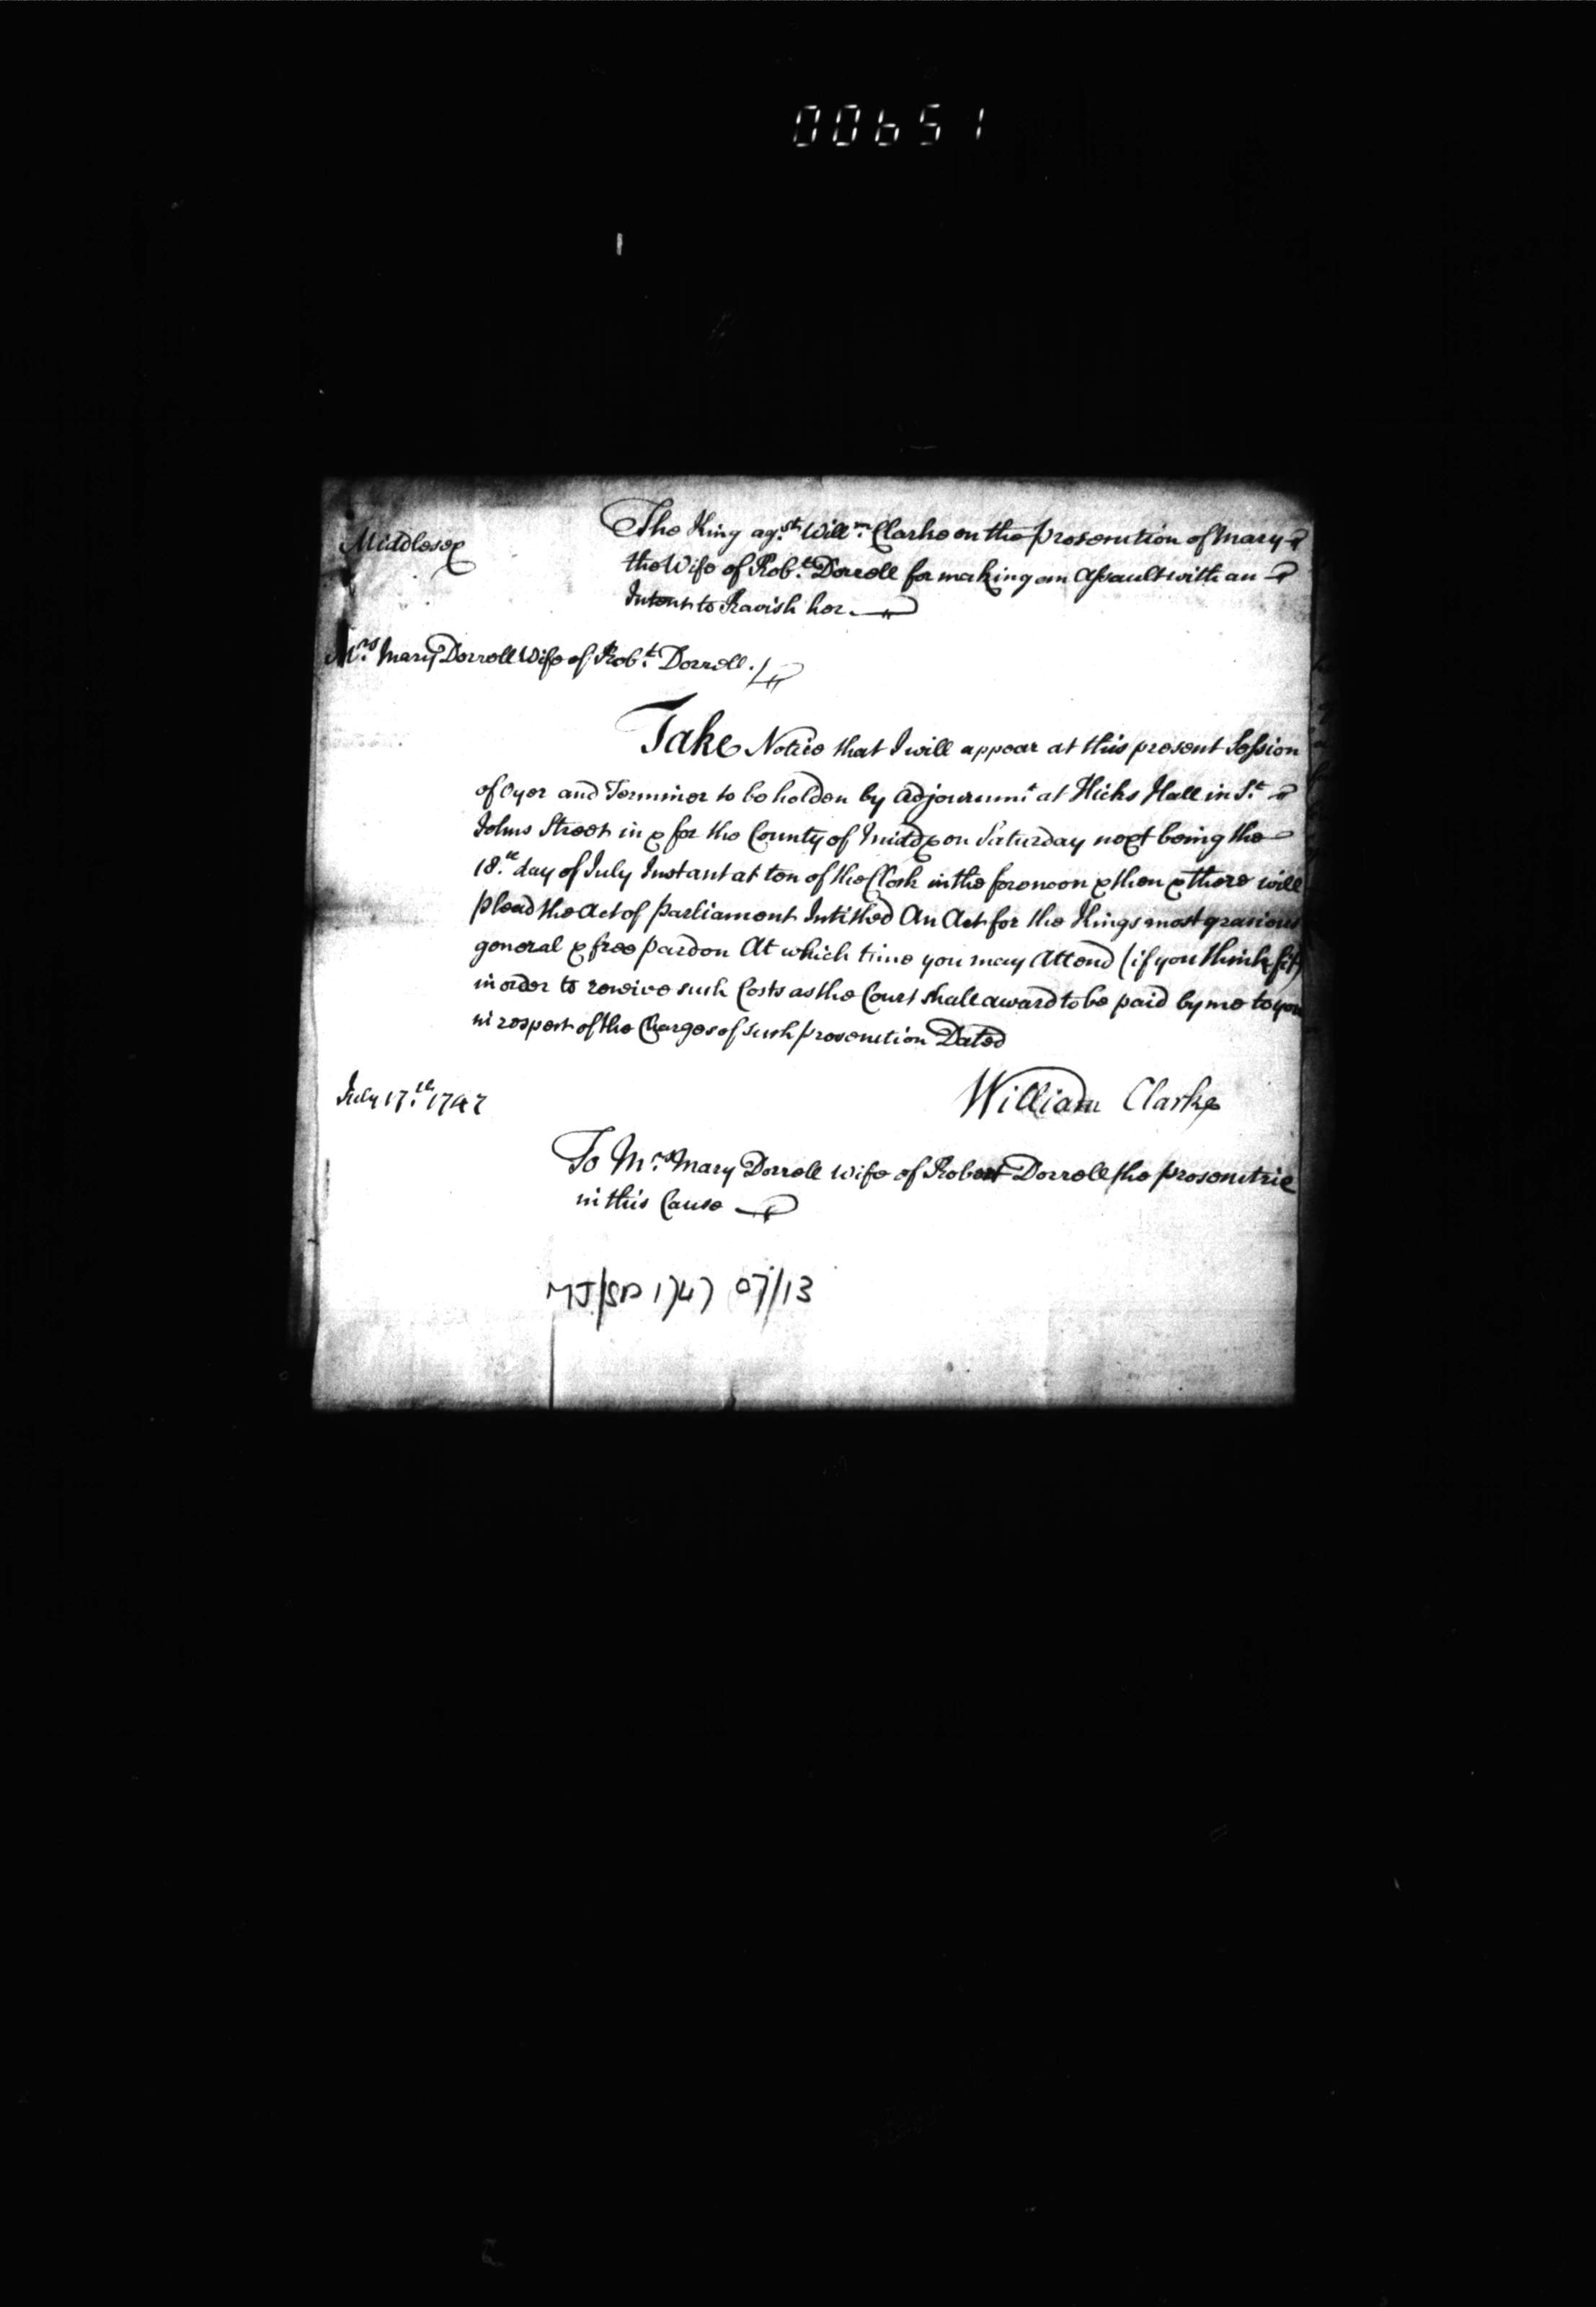 00651
Middlesex
The King agst. Willm. Clarke on the prosecution of Mary
the Wife of Robt. Dorrell for making an Assault with an
Intent to Ravish her.
Mrs. Mary Dorrell Wife of Robt. Dorrell.
Take Notice that I will appear at this present Session
of Oyer and Terminer to be holden by Adjournmt. at Hicks Hall in St.
Johns Street in & for the County of Middx on Saturday next being the
18th. day of July Instant at ten of the Clock in the forenoon & then & there will
plead the Act of parliament Intitled An Act for the Kings most gracious
general & free pardon At which time you may Attend (if you think fit)
in order to receive such Costs as the Court shall award to be paid by me to you
in respect of the Charges of such prosecution Dated
July 17th. 1747
William Clarke
To Mrs. Mary Dorrell wife of Robert Dorrell the prosecutrie
in this Cause
MJ/SP 1747 07/13